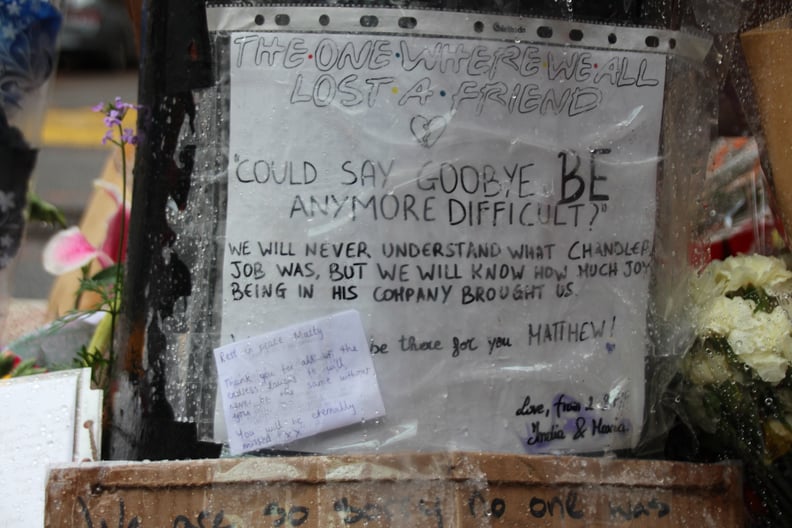 THE·ONE·WHERE·WE·ALL
LOST·A·FRIEND
"COULD SAY GOOBYE BE
ANYMORE DIFFICULT?"
WE WILL NEVER UNDERSTAND WHAT CHANDLER
JOB WAS, BUT WE WILL KNOW HOW MUCH JOY
BEING IN HIS COMPANY BROUGHT US.
be there for you MATTHEW!
Rest in peace Matty
Thank you for all of the
endless laughs it will
never be the same without
you
You will be eternally
missed xx
Love, from 2
&
We are so sorry no one was